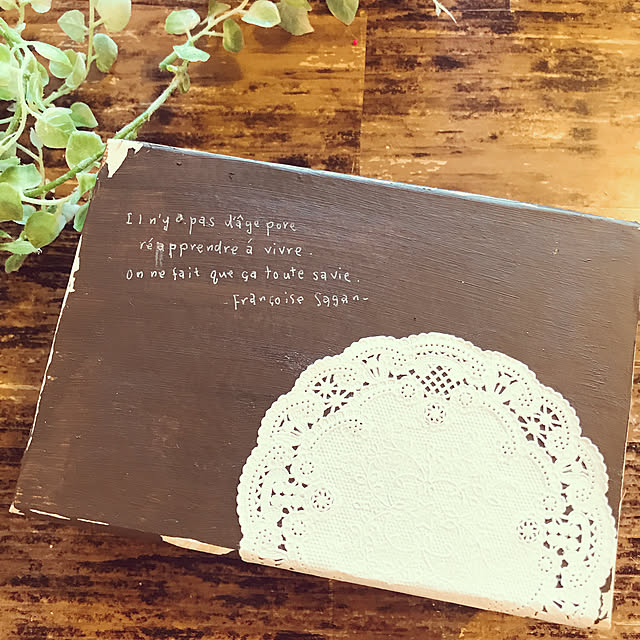 Il n'y a pas d'âge pore
réapprendre á vivre.
On ne fait que ça toute sa vie.
-Françoise Sagan-